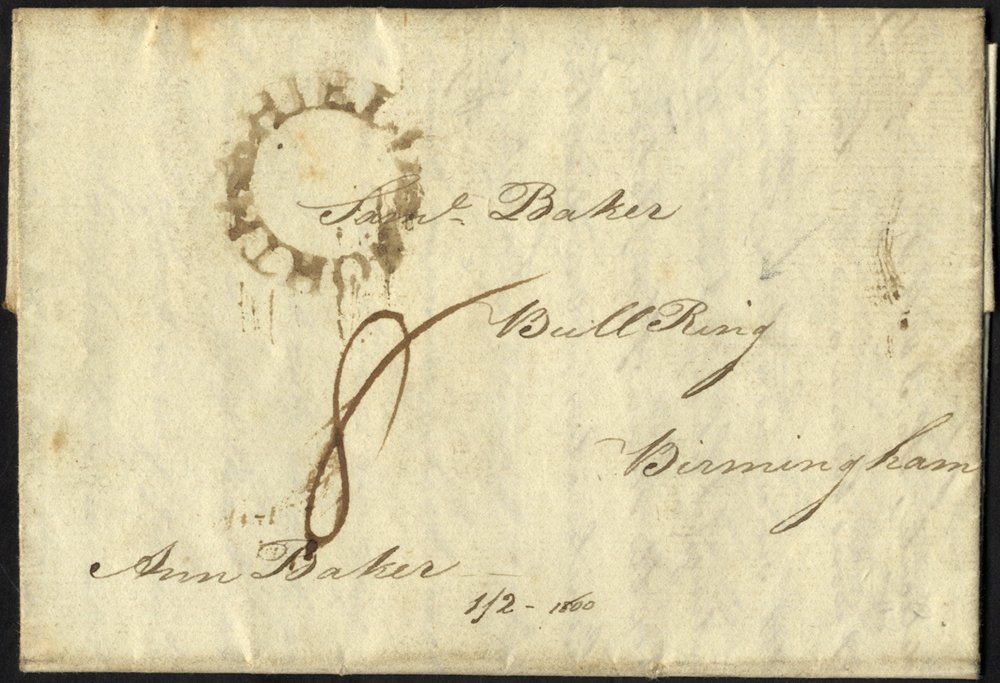 NORTH SHIELDS
Saml. Baker
Bull Ring
8
Birmingham
Ann Baker
1/2 - 1800